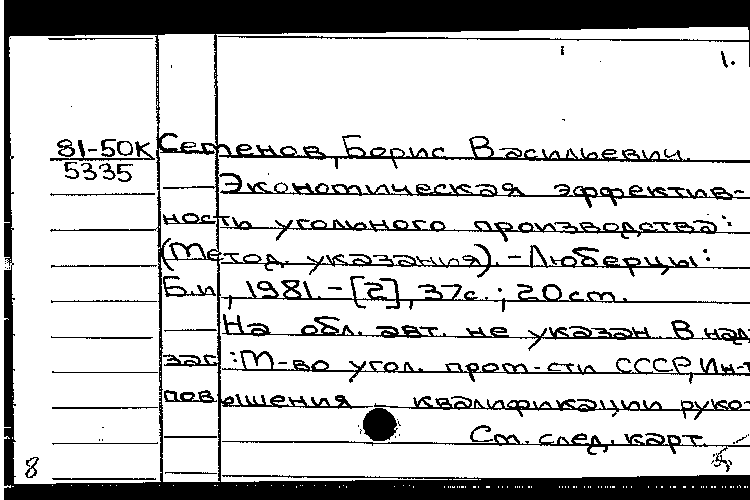 1.
81-50К Семенов, Борис Васильевич.
5335
Экономическая эффектив-
ность угольного производства:
(Метод. указания). - Люберцы:
Б.и., 1981. - [2], 37с.; 20 см.
На обл. авт. не указан. В над
заг.: М-во угол. пром-сти СССР, Ин-т
повышения квалификации руко-
См. след. карт.
8